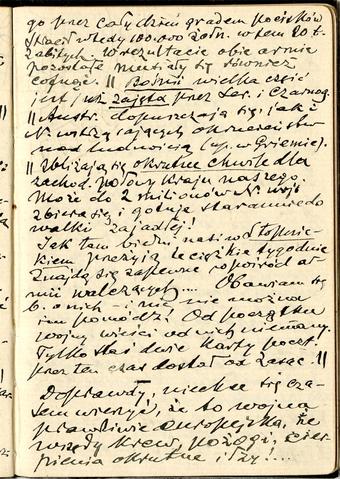 go przez cały dzień gradem pocisków
stracił wtedy 100.000 żołn. w tem 20 t.
zabitych. W rezultacie obie armie
pozostałe musiały się również
cofnąć. || Bośnii wielka część
jest już zajęta przez Ser. i Czarnog.
|| Austr. dopuszczają się, jak i
N. wstrząsających okrucieństw
nad ludnością (np. w Griemie).
|| Zbliżają się okrutne chwile dla
zachod. połowy kraju naszego.
Może do 2 milionów N. wojs
zbiera się i gotuje staram do
walki zajadłej!
Jak tam biedni nasi w
przeżyją te ciężkie tygodnie
Znajdą się zapewne pośród ar-
mii walczących.... Obawiam się
b. o nich – i nic nie można
im pomódz! Od początku
wojny wieści od nich niemamy.
Tylko Staś dwie karty poczt.
przez ten czas dostał od Zasąc. ||
Doprawdy, niechce się cza-
sem wierzyć, że to wojna
prawdziwie europejska, że
wszędy krew, pożogi, cier-
pienia okrutne i łzy!....